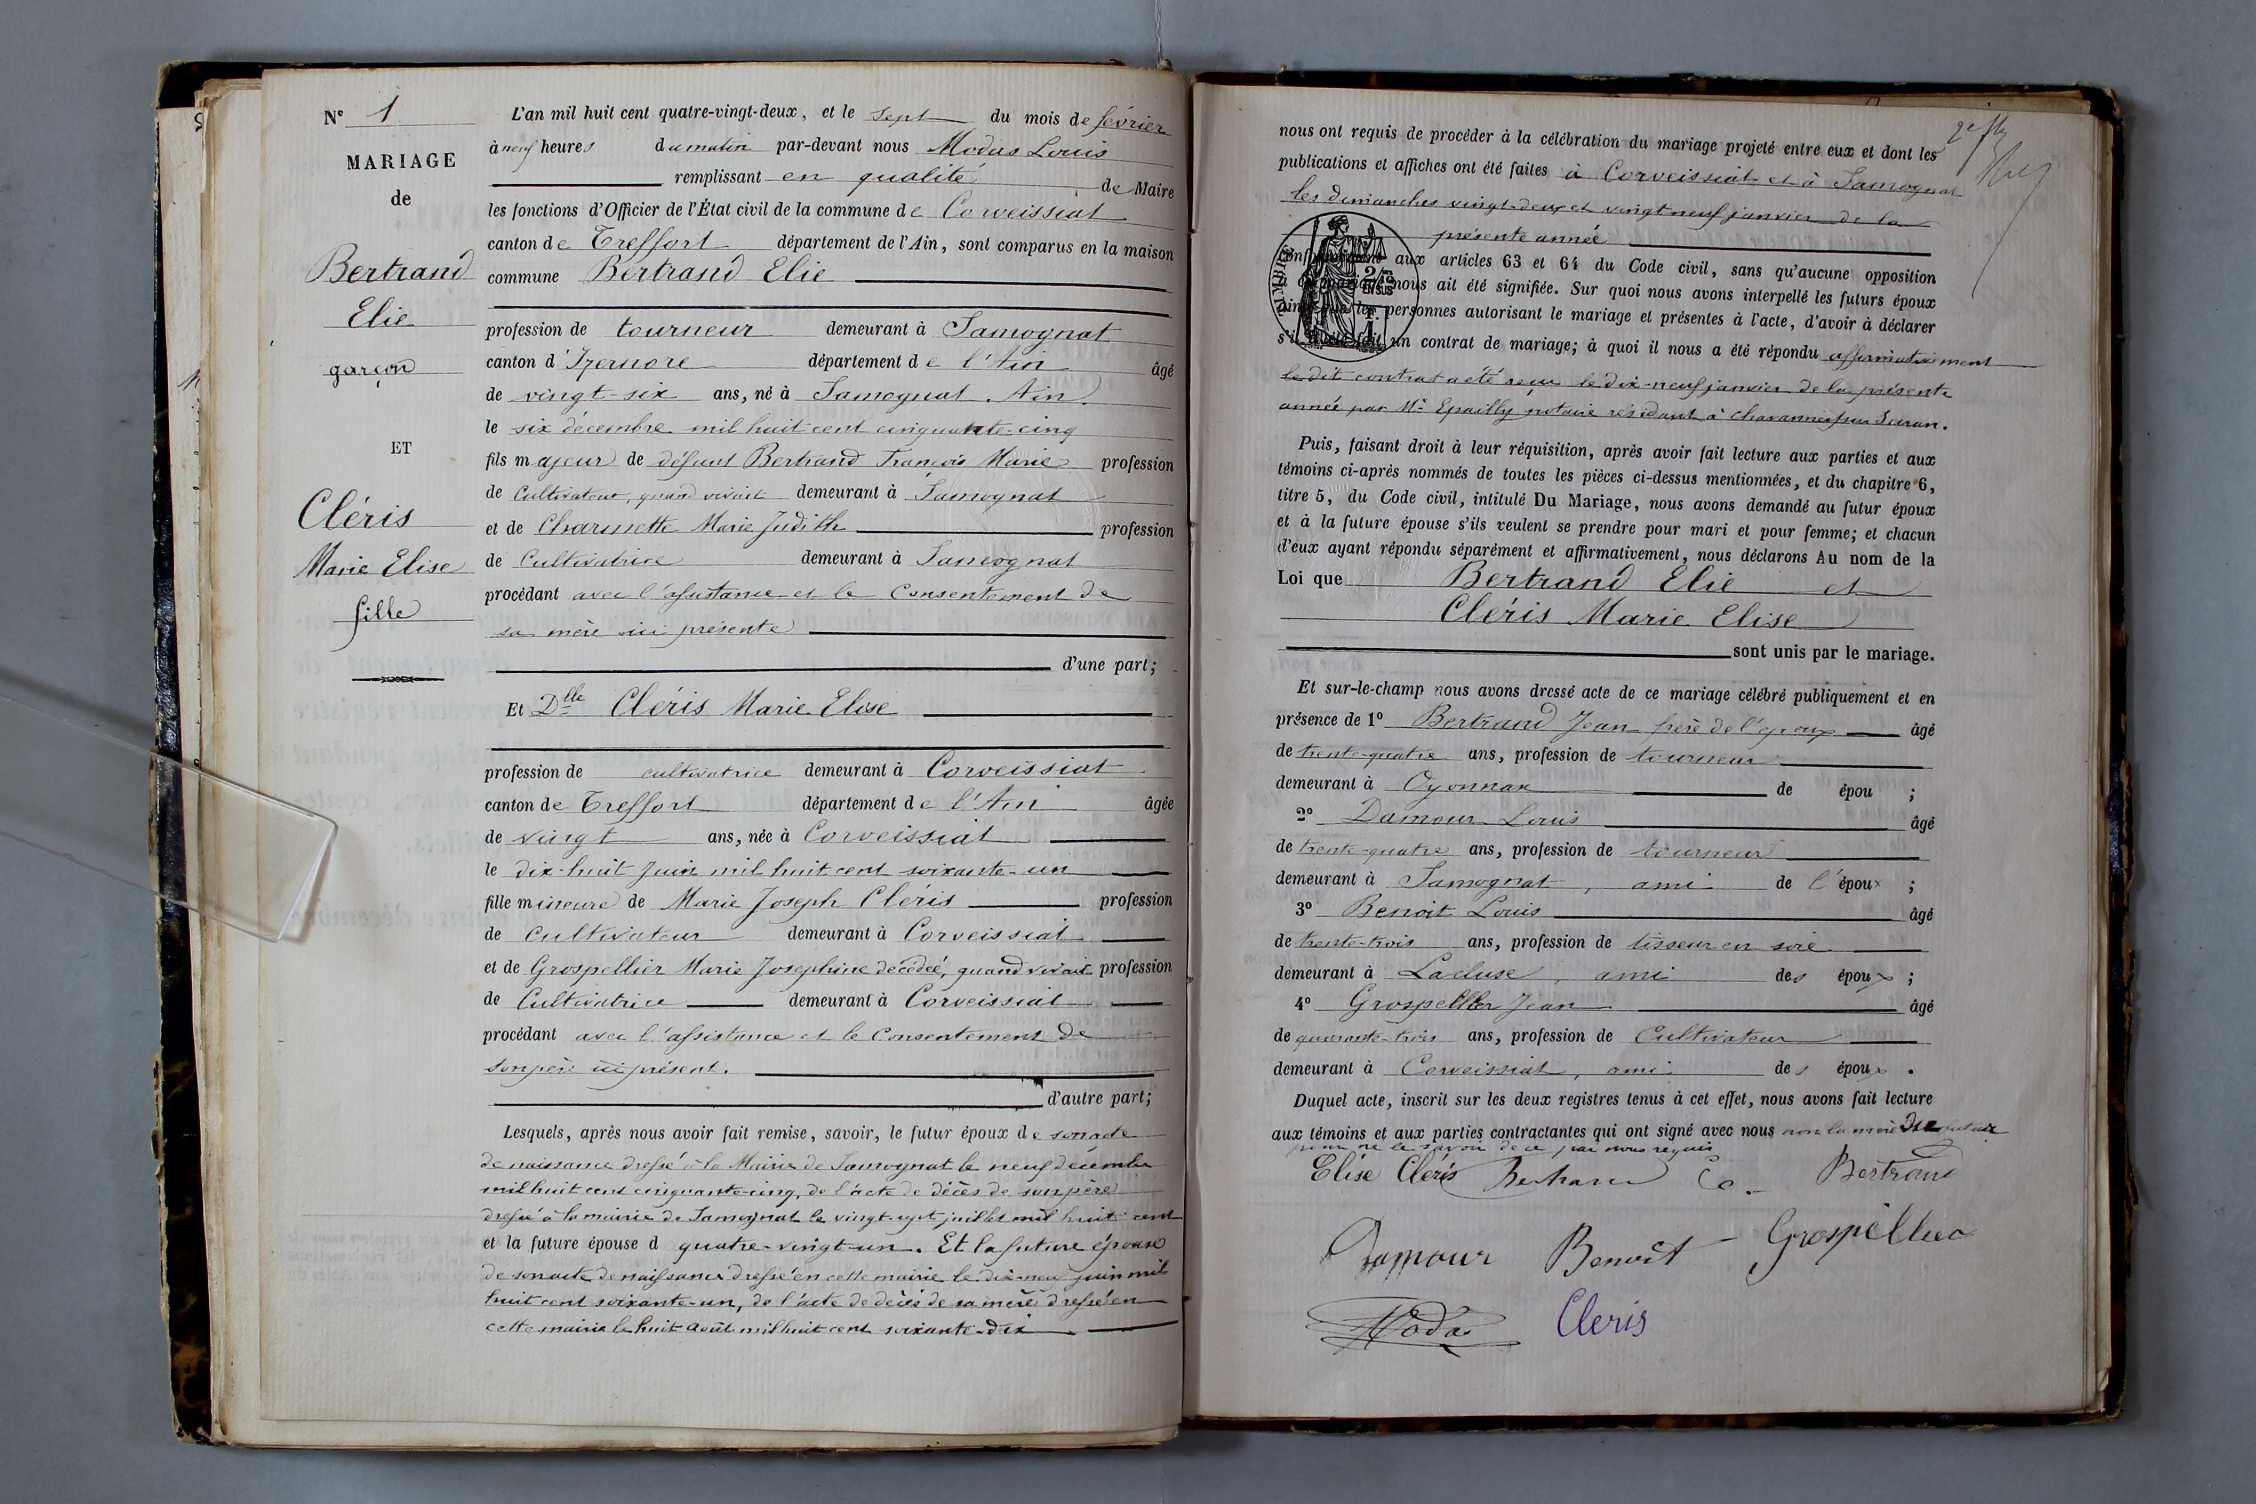 Nº 1
MARIAGE
de
Bertrand
Elie
garçon
ET
Cléris
Marie Elise
fille
L'an mil huit cent quatre-vingt-deux, et le sept du mois de février
à neuf heures du matin par-devant nous Modas Louis
remplissant en qualité de Maire
les fonctions d'Officier de l'État civil de la commune de Corveissiat
canton de Treffort département de l'Ain, sont comparus en la maison
commune Bertrand Elie
profession de tourneur demeurant à Samognat
canton d'Izernore département de l'Ain âgé
de vingt-six ans, né à Samognat Ain.
le six décembre mil huit cent cinquante-cinq
fils majeur de défunt Bertrand François Marie profession
de Cultivateur, quand vivait demeurant à Samognat
et de Charmette Marie Judith profession
de Cultivatrice demeurant à Samognat
procédant avec l'assistance et le Consentement de
sa mère ici présente
d'une part;
Et Dlle Cléris Marie Elise
profession de cultivatrice demeurant à Corveissiat
canton de Treffort département de l'Ain âgée
de vingt ans, née à Corveissiat
le dix-huit Juin mil huit cent soixante-un
fille mineure de Marie Joseph Cléris profession
de Cultivateur demeurant à Corveissiat
et de Grospellier Marie Josephine décédée, quand vivait profession
de Cultivatrice demeurant à Corveissiat
procédant avec l'assistance et le Consentement de
son père ici présent.
d'autre part;
Lesquels, après nous avoir fait remise, savoir, le futur époux de son acte
de naissance dressé à la Mairie de Samognat le neuf décembre
mil huit cent cinquante-cinq, de l'acte de décès de son père
dressé à la mairie de Samognat le vingt-sept juillet mil huit cent
et la future épouse d quatre-vingt-un. Et la future épouse
de son acte de naissance dressé en cette mairie le dix-neuf juin mil
huit cent soixante-un, de l'acte de décès de sa mère dressé en
cette mairie le huit août mil huit cent soixante-dix
nous ont requis de procéder à la célébration du mariage projeté entre eux et dont les
publications et affiches ont été faites à Corveissiat et à Samognat
les dimanches vingt-deux et vingt neuf janvier de la
présente année
TIMBRE
2/10 EN SUS
conformément aux articles 63 et 64 du Code civil, sans qu'aucune opposition
à ce mariage nous ait été signifiée. Sur quoi nous avons interpellé les futurs époux
ainsi que les personnes autorisant le mariage et présentes à l'acte, d'avoir à déclarer
s'il a été fait un contrat de mariage; à quoi il nous a été répondu affirmativement
le dit contrat a été reçu le dix-neuf janvier de la présente
année par Me Epailly notaire résidant à Chavannes sur Suran.
Puis, faisant droit à leur réquisition, après avoir fait lecture aux parties et aux
témoins ci-après nommés de toutes les pièces ci-dessus mentionnées, et du chapitre 6,
titre 5, du Code civil, intitulé Du Mariage, nous avons demandé au futur époux
et à la future épouse s'ils veulent se prendre pour mari et pour femme; et chacun
d'eux ayant répondu séparément et affirmativement, nous déclarons Au nom de la
Loi que Bertrand Elie et
Cléris Marie Elise
sont unis par le mariage.
Et sur-le-champ nous avons dressé acte de ce mariage célébré publiquement et en
présence de 1º Bertrand Jean frère de l'époux âgé
de trente-quatre ans, profession de tourneur
demeurant à Oyonnax de épou ;
2º Damour Louis âgé
de trente-quatre ans, profession de tourneur
demeurant à Samognat, ami de l'époux ;
3º Benoit Louis âgé
de trente-trois ans, profession de tisseur en soie
demeurant à Lacluse, ami des époux ;
4º Grospellier Jean âgé
de quarante-trois ans, profession de Cultivateur
demeurant à Corveissiat, ami des époux .
Duquel acte, inscrit sur les deux registres tenus à cet effet, nous avons fait lecture
aux témoins et aux parties contractantes qui ont signé avec nous non la mère du futur
pour ne le savoir de ce par nous requis
Elise Cléris Bertrand Bertrand
Damour Benoit Grospellier
Modas Cleris